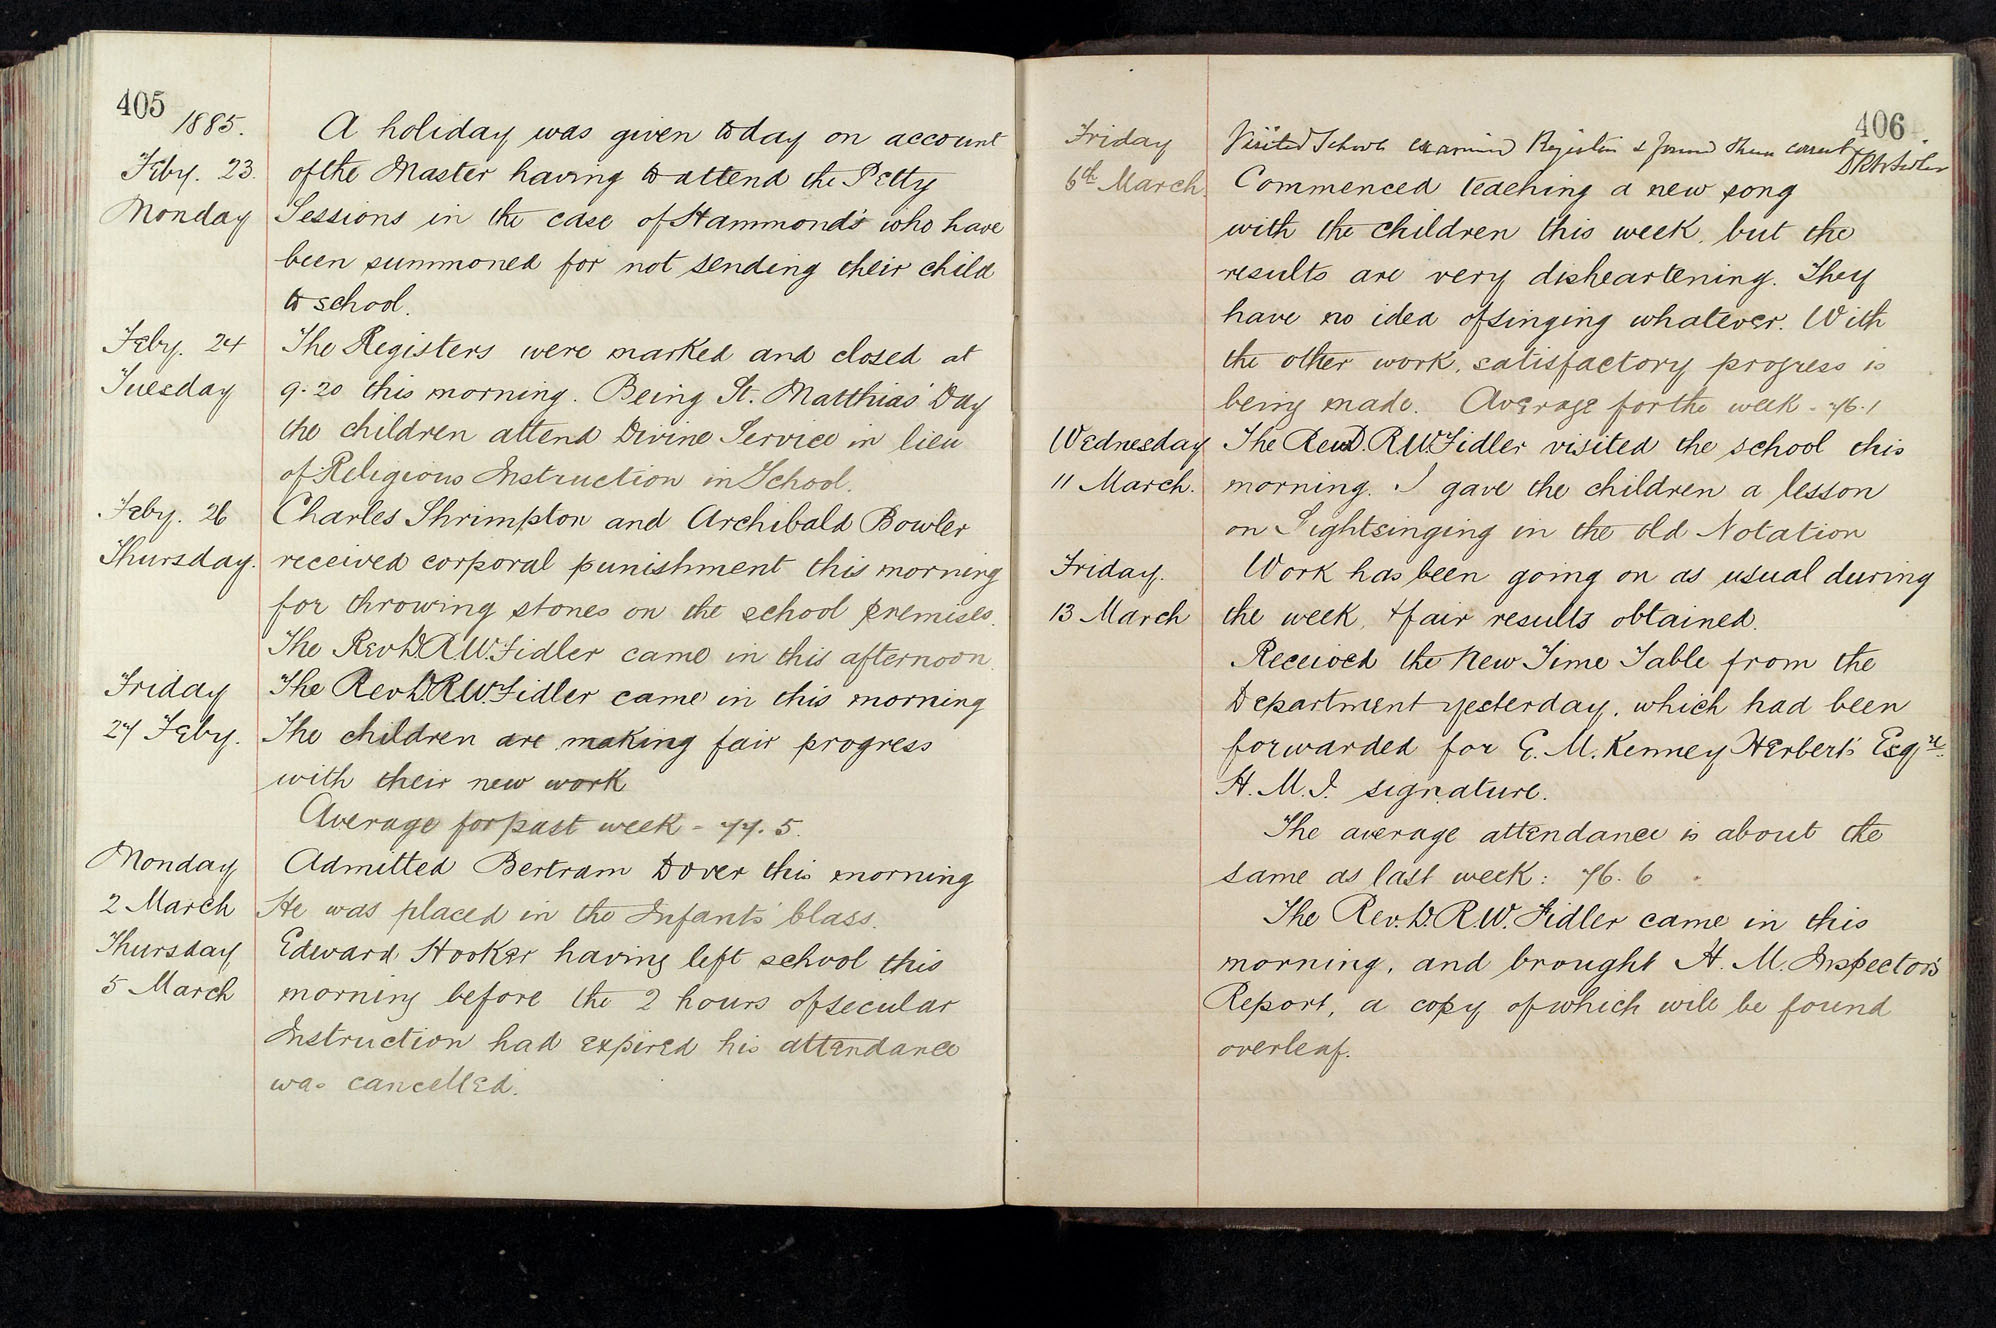 405
1885.
A holiday was given today on account
Feby. 23. of the Master having to attend the Petty
Monday Sessions in the case of Hammond's who have
been summoned for not sending their child
to school.
Feby. 24 The Registers were marked and closed at
Tuesday 9.20 this morning. Being St. Matthias' Day
the children attend Divine Service in lieu
of Religious Instruction in School.
Feby. 26 Charles Shrimpton and Archibald Bowler
Thursday. received corporal punishment this morning
for throwing stones on the school premises.
The Rev D. R. W. Fidler came in this afternoon.
Friday The Rev D. R. W. Fidler came in this morning
27 Feby. The children are making fair progress
with their new work
Average for past week - 77.5.
Monday Admitted Bertram Dover this morning
2 March He was placed in the Infants' Class.
Thursday Edward Hooker having left school this
5 March morning before the 2 hours of secular
Instruction had expired his attendance
was cancelled.
406
Friday Visited School examined Registers & found them correct
D R W Fidler
6th March. Commenced teaching a new song
with the children this week, but the
results are very disheartening. They
have no idea of singing whatever. With
the other work, satisfactory progress is
being made. Average for the week - 76.1
Wednesday The Rev D. R. W. Fidler visited the school this
11 March. morning. I gave the children a lesson
on Sightsinging in the old Notation
Friday. Work has been going on as usual during
13 March the week, & fair results obtained.
Received the New Time Table from the
Department yesterday, which had been
forwarded for E. M. Kenney Herbert's Esqre.
H. M. I. signature.
The average attendance is about the
same as last week: 76.6
The Rev. D. R. W. Fidler came in this
morning, and brought H. M. Inspector's
Report, a copy of which will be found
overleaf.